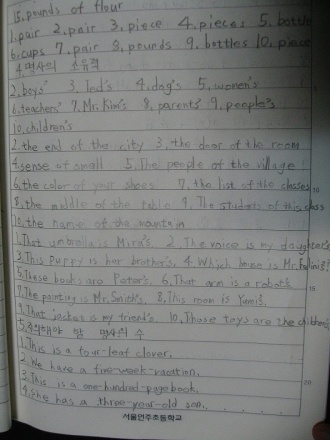 15. pounds of flour
1. pair 2. pair 3. piece 4. pieces 5. bottle
6. cups 7. pair 8. pounds 9. bottles 10. piece
4. 명사의 소유격
2. boys' 3. Ted's 4. dog's 5. women's
6. teachers' 7. Mr. Kim's 8. parents' 9. people's
10. children's
2. the end of the city 3. the door of the room
4. sense of small 5. The people of the village
6. the color of your shoes 7. the list of the classes
8. the middle of the table 9. The students of this class
10. the name of the mountain
1. That umbrella is Mira's. 2. The voice is my daughter's
3. This puppy is her brother's. 4. Which house is Mr.
5. These books are Peter's. 6. That arm is a robot's
7. The painting is Mr. Smith's. 8. This room is Yumi's.
9. That jacket is my friend's. 10. Those toys are the children's
5. 주의해야 할 명사의 수
1. This is a four-leaf clover.
2. We have a five-week-vacation.
3. This is a one-hundred-page book.
4. She has a three-year-old son.
10
15
20
서울언주초등학교